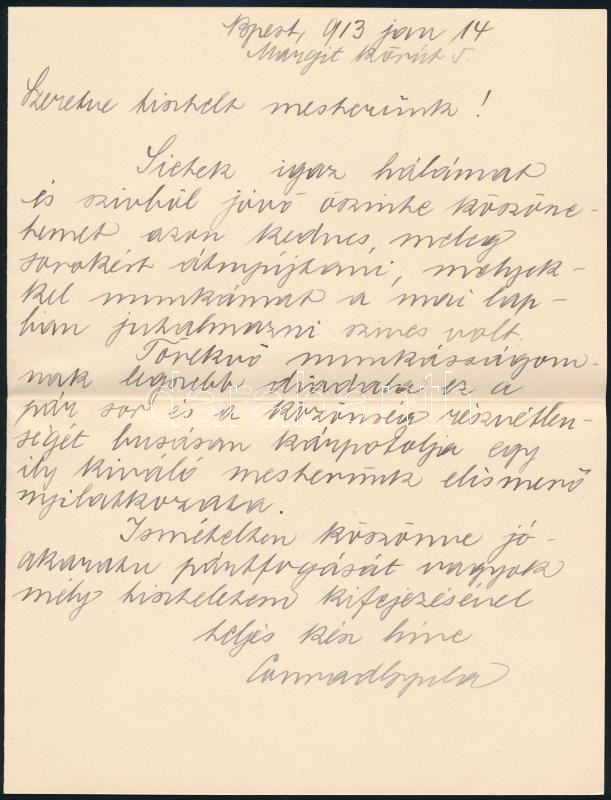 Bpest, 913 jan 14
Margit körút 5.
Szeretve tisztelt mesterünk!
Sietek igaz hálámat
és szivből jövő őszinte köszöne-
temet azon kedves, meleg
sorokért átnyújtani, melyek-
kel munkámat a mai lap-
ban jutalmazni szives volt.
Törekvő munkásságom-
nak legszebb diadala ez a
pár sor és a közönség részvétlen-
ségét busásan kárpotolja egy
ily kiváló mesterünk elismerő
nyilatkozata.
Ismételten köszönve jó-
akaratu pártfogását vagyok
mély tiszteletem kifejezésével
teljes kész híve
Conrad Gyula
darabanth